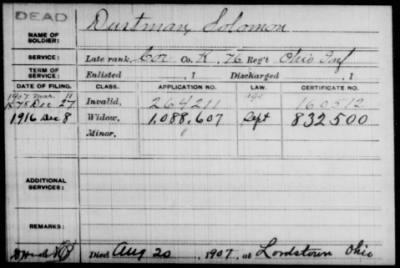 DEAD
NAME OF SOLDIER: Dustman, Solomon
SERVICE: Late rank, Cor Co. K, 76 Reg't Ohio Inf
TERM OF SERVICE: Enlisted , 1 Discharged , 1
DATE OF FILING. CLASS. APPLICATION NO. LAW. CERTIFICATE NO.
1907 Mar. 11
1878 Dec 27 Invalid, 264211 160512
1916 Dec 8 Widow, 1,088,607 Sept 832500
Minor,
ADDITIONAL SERVICES:
REMARKS:
Died Aug 20, 1907, at Lordstown Ohio